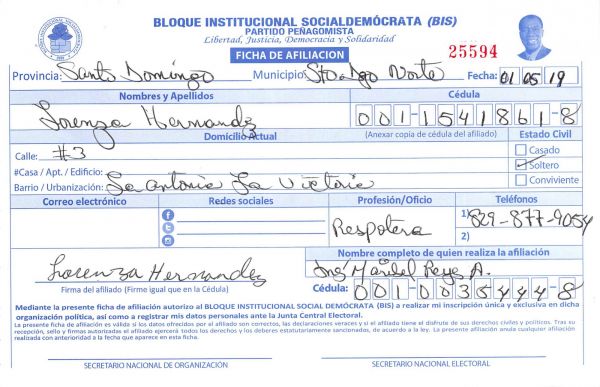 BLOQUE INSTITUCIONAL SOCIALDEMÓCRATA (BIS)
PARTIDO PEÑAGOMISTA
Libertad, Justicia, Democracia y Solidaridad
FICHA DE AFILIACION
25594
Provincia: Santo Domingo Municipio: Sto. Dgo Norte Fecha: 01 05 19
Nombres y Apellidos Cédula
Lorenza Hernandez 001-1541861-8
Domicilio Actual (Anexar copia de cédula del afiliado) Estado Civil
Calle: #3 Casado
#Casa / Apt. / Edificio: Soltero
Barrio / Urbanización: La Victoria Conviviente
Correo electrónico Redes sociales Profesión/Oficio Teléfonos
Respotera 1) 829-877-9054
2)
Nombre completo de quien realiza la afiliación
Lorenza Hernandez Ing. Maribel Reyes A.
Firma del afiliado (Firme igual que en la Cédula) Cédula: 001-0035444-8
Mediante la presente ficha de afiliación autorizo al BLOQUE INSTITUCIONAL SOCIAL DEMÓCRATA (BIS) a realizar mi inscripción única y exclusiva en dicha
organización política, así como a registrar mis datos personales ante la Junta Central Electoral.
La presente ficha de afiliación es válida si los datos ofrecidos por el afiliado son correctos, las declaraciones veraces y si el afiliado tiene el disfrute de sus derechos civiles y políticos. Tras su
recepción, sello y firmas autorizadas el afiliado ejercerá todos los derechos y los deberes estatutariamente sancionados, de acuerdo a la ley. La presente afiliación anula cualquier afiliación
realizada con anterioridad a la fecha que aparece en esta ficha.
SECRETARIO NACIONAL DE ORGANIZACIÓN SECRETARIO NACIONAL ELECTORAL